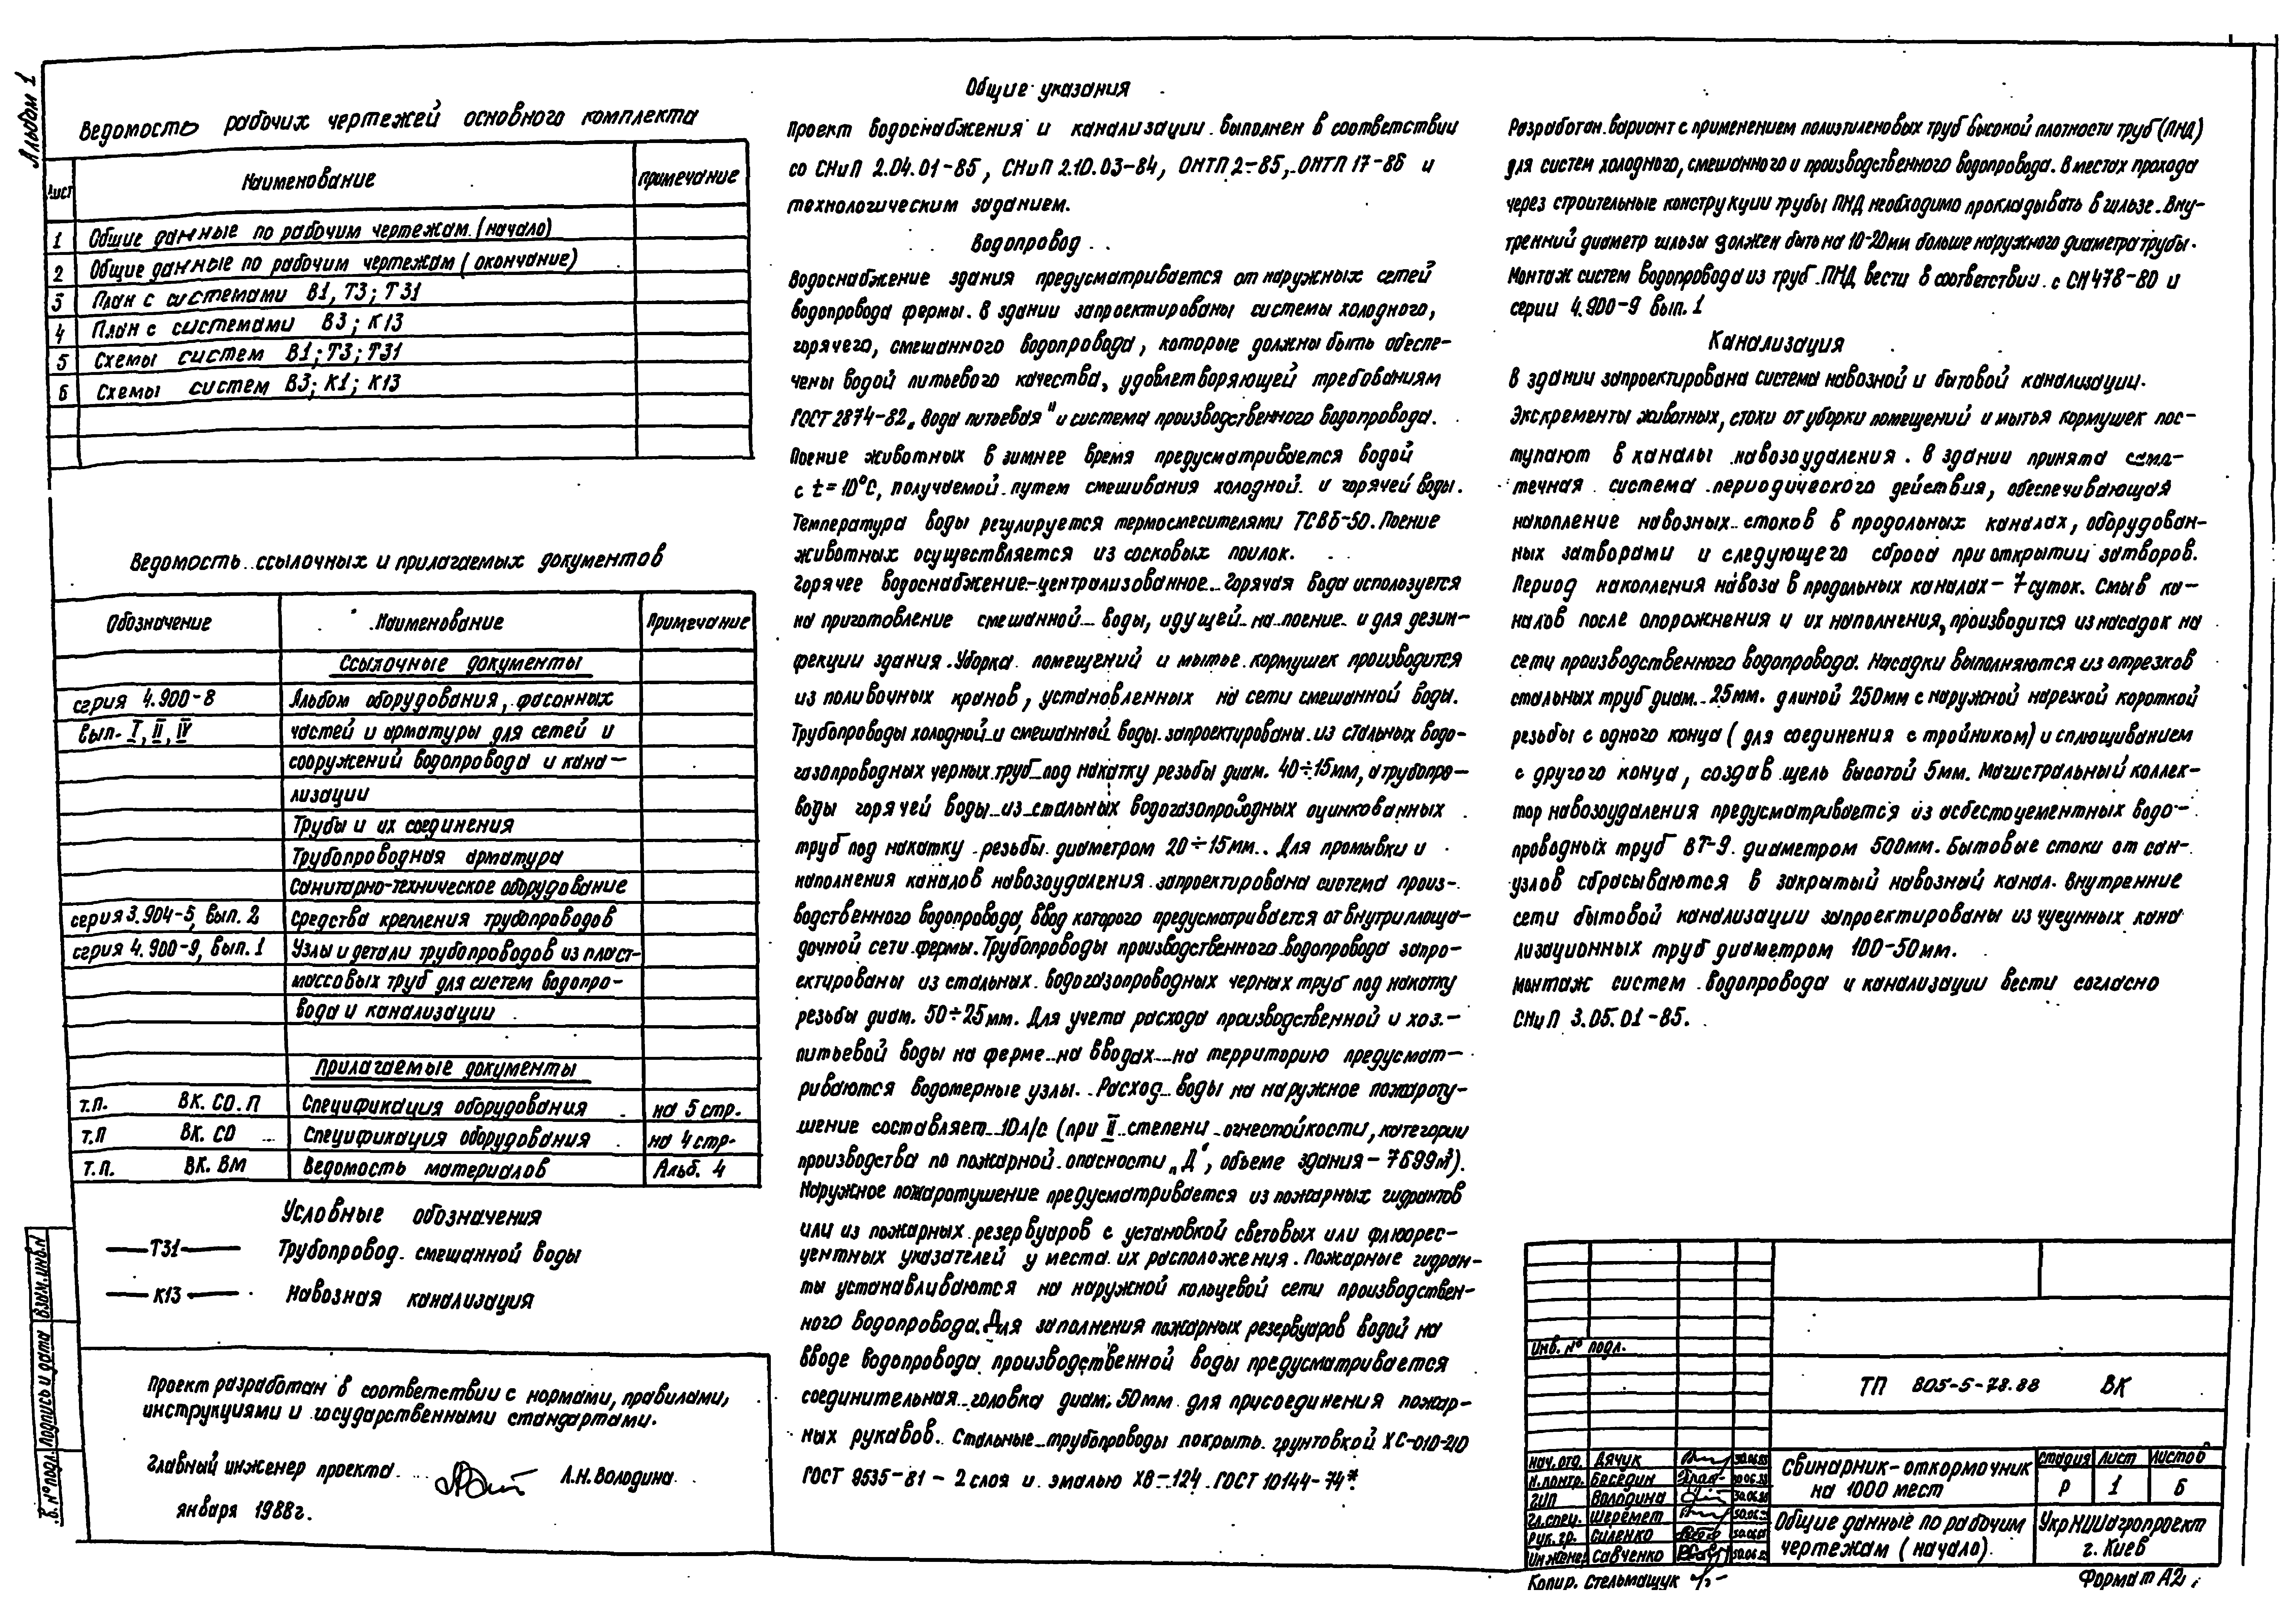 Альбом 1
Ведомость рабочих чертежей основного комплекта
Лист
Наименование
Примечание
1 Общие данные по рабочим чертежам (начало)
2 Общие данные по рабочим чертежам (окончание)
3 План с системами В1, Т3; Т31
4 План с системами В3; К13
5 Схемы систем В1; Т3; Т31
6 Схемы систем В3; К1; К13
Ведомость ссылочных и прилагаемых документов
Обозначение
Наименование
Примечание
Ссылочные документы
серия 4.900-8 Альбом оборудования, фасонных
вып. I, II, IV частей и арматуры для сетей и
сооружений водопровода и кана-
лизации
Трубы и их соединения
Трубопроводная арматура
Санитарно-техническое оборудование
серия 3.904-5, вып. 2 Средства крепления трубопроводов
серия 4.900-9, вып. 1 Узлы и детали трубопроводов из пласт-
массовых труб для систем водопро-
вода и канализации
Прилагаемые документы
т.п. ВК. СО. П Спецификация оборудования на 5 стр.
т.п ВК. СО Спецификация оборудования на 4 стр.
т.п. ВК. ВМ Ведомость материалов Альб. 4
Условные обозначения
Т31 Трубопровод смешанной воды
К13 Навозная канализация
Проект разработан в соответствии с нормами, правилами,
инструкциями и государственными стандартами.
Главный инженер проекта А.Н. Володина
января 1988г.
Взам. инв. N
Подпись и дата
в. № подл.
Общие указания
Проект водоснабжения и канализации выполнен в соответствии
со СНиП 2.04.01-85, СНиП 2.10.03-84, ОНТП 2-85, ОНТП 17-86 и
технологическим заданием.
Водопровод
Водоснабжение здания предусматривается от наружных сетей
водопровода фермы. В здании запроектированы системы холодного,
горячего, смешанного водопровода, которые должны быть обеспе-
чены водой питьевого качества, удовлетворяющей требованиям
ГОСТ 2874-82 „Вода питьевая" и система производственного водопровода.
Поение животных в зимнее время предусматривается водой
с t = 10°С, получаемой путем смешивания холодной и горячей воды.
Температура воды регулируется термосмесителями ТСВБ-50. Поение
животных осуществляется из сосковых поилок.
Горячее водоснабжение - централизованное. Горячая вода используется
на приготовление смешанной воды, идущей на поение и для дезин-
фекции здания. Уборка помещений и мытье кормушек производится
из поливочных кранов, установленных на сети смешанной воды.
Трубопроводы холодной и смешанной воды запроектированы из стальных водо-
газопроводных черных труб под накатку резьбы диам. 40÷15мм, а трубопро-
воды горячей воды из стальных водогазопроводных оцинкованных
труб под накатку резьбы диаметром 20÷15мм. Для промывки и
наполнения каналов навозоудаления запроектирована система произ-
водственного водопровода, ввод которого предусматривается от внутриплоща-
дочной сети фермы. Трубопроводы производственного водопровода запро-
ектированы из стальных водогазопроводных черных труб под накатку
резьбы диам. 50÷25мм. Для учета расхода производственной и хоз.-
питьевой воды на ферме на вводах на территорию предусмат-
риваются водомерные узлы. Расход воды на наружное пожароту-
шение составляет 10л/с (при II степени огнестойкости, категории
производства по пожарной опасности „Д", объеме здания - 7699м³).
Наружное пожаротушение предусматривается из пожарных гидрантов
или из пожарных резервуаров с установкой световых или флюорес-
центных указателей у места их расположения. Пожарные гидран-
ты устанавливаются на наружной кольцевой сети производствен-
ного водопровода. Для заполнения пожарных резервуаров водой на
вводе водопровода производственной воды предусматривается
соединительная головка диам. 50мм для присоединения пожар-
ных рукавов. Стальные трубопроводы покрыть грунтовкой ХС-010-210
ГОСТ 9535-81 - 2 слоя и эмалью ХВ-124 ГОСТ 10144-74*.
Разработан вариант с применением полиэтиленовых труб высокой плотности труб (ПНД)
для систем холодного, смешанного и производственного водопровода. В местах прохода
через строительные конструкции трубы ПНД необходимо прокладывать в гильзе. Вну-
тренний диаметр гильзы должен быть на 10-20мм больше наружного диаметра трубы.
Монтаж систем водопровода из труб ПНД вести в соответствии с СН 478-80 и
серии 4.900-9 вып. 1
Канализация
В здании запроектирована система навозной и бытовой канализации.
Экскременты животных, стоки от уборки помещений и мытья кормушек пос-
тупают в каналы навозоудаления. В здании принята само-
течная система периодического действия, обеспечивающая
накопление навозных стоков в продольных каналах, оборудован-
ных затворами и следующего сброса при открытии затворов.
Период накопления навоза в продольных каналах - 7 суток. Смыв ка-
налов после опорожнения и их наполнения, производится из насадок на
сети производственного водопровода. Насадки выполняются из отрезков
стальных труб диам. 25мм. длиной 250мм с наружной нарезкой короткой
резьбы с одного конца (для соединения с тройником) и сплющиванием
с другого конца, создав щель высотой 5мм. Магистральный коллек-
тор навозоудаления предусматривается из асбестоцементных водо-
проводных труб ВТ-9 диаметром 500мм. Бытовые стоки от сан-
узлов сбрасываются в закрытый навозный канал. Внутренние
сети бытовой канализации запроектированы из чугунных кана
лизационных труб диаметром 100-50мм.
Монтаж систем водопровода и канализации вести согласно
СНиП 3.05.01-85.
Инв. № подл.
ТП 805-5-78.88 ВК
Нач. отд. Дячук 30.06.88
Н. контр. Беседин 30.06.88
ГИП Володина 30.06.88
Гл. спец. Шеремет 30.06.88
Рук. гр. Силенко 30.06.88
Инженер Савченко 30.06.88
Свинарник-откормочник
на 1000 мест
Стадия Лист Листов
Р 1 6
Общие данные по рабочим
чертежам (начало)
УкрНИИагропроект
г. Киев
Копир. Стельмащук
Формат А2